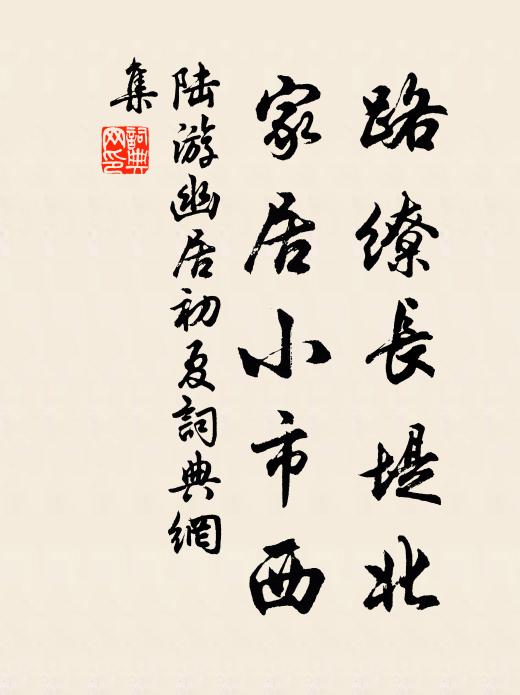 路繚長堤北
家居小市西
陆游幽居初夏詞典網
集
詞典
网印